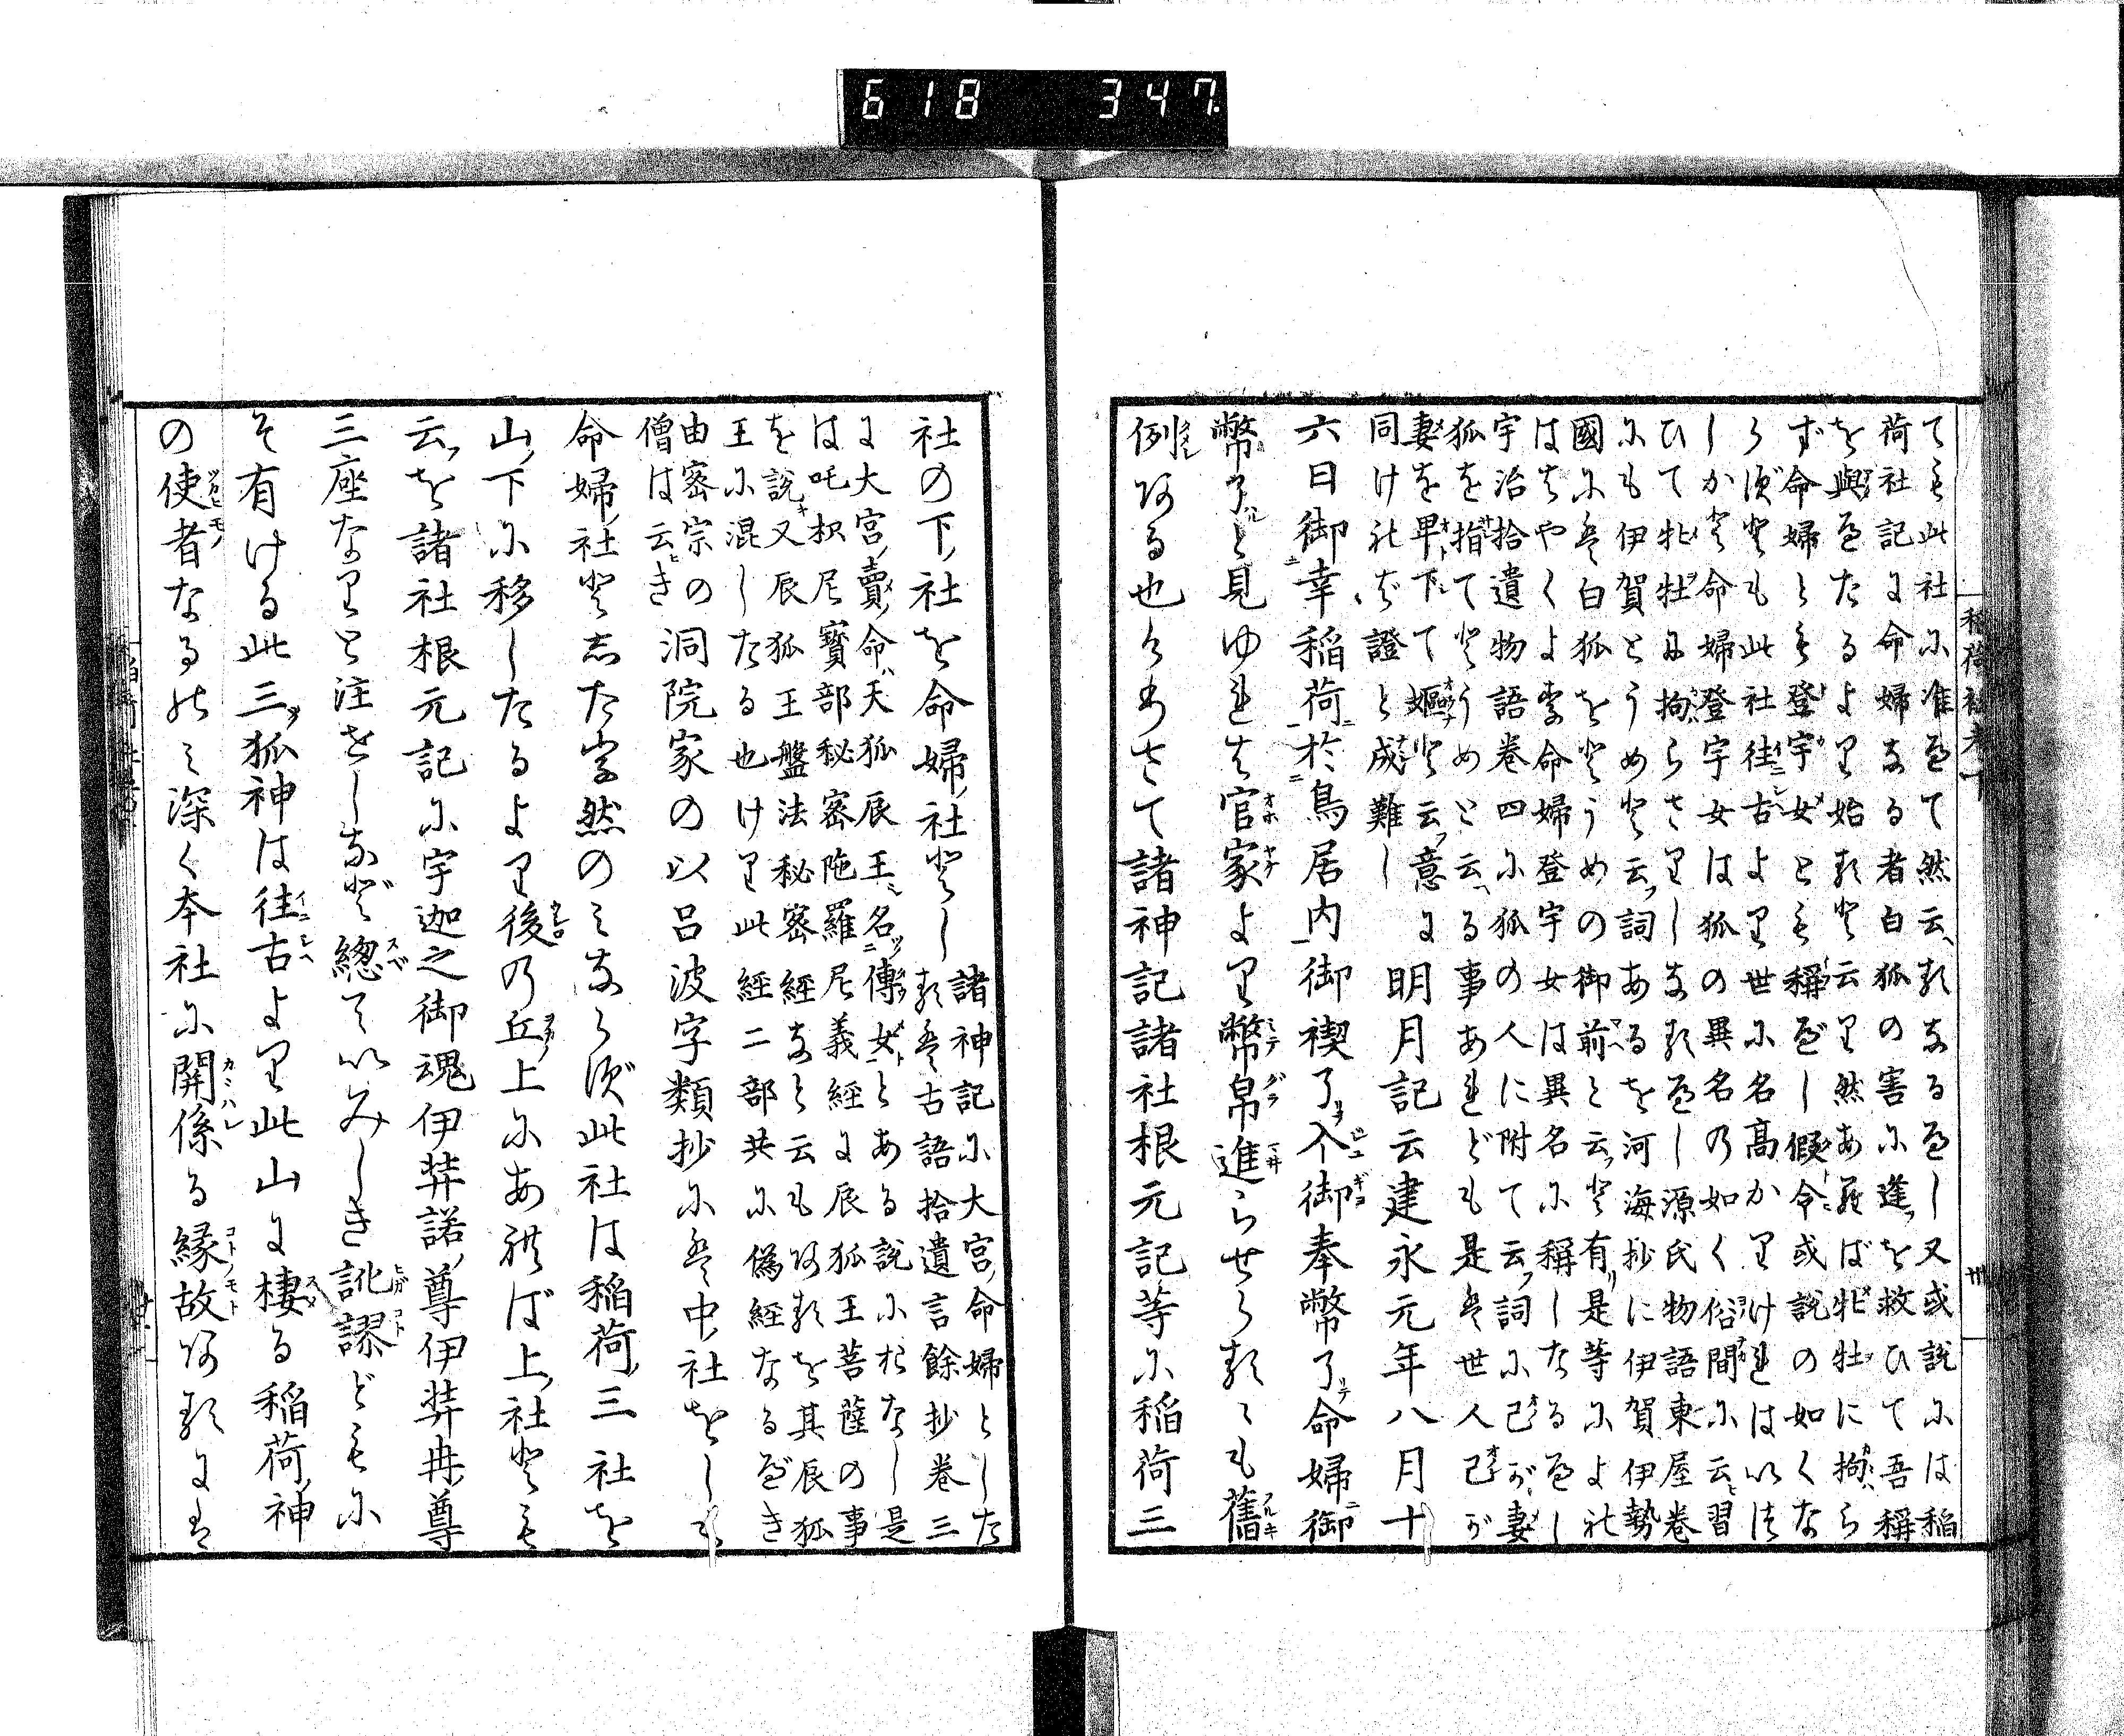 618 347
稲荷社考下
ても此社に准へて然云るなるへし又或説には稲
荷社記に命婦なる者白狐の害に逢を救ひて吾稱
を與へたるより始ると云り然あれば牝牡に拘ら
ず命婦とも登宇女とも稱べし假令或説の如くな
らずとも此社往古より世に名高かりければいつ
しかと命婦登宇女は狐の異名の如く俗間に云習
ひて牝牡に拘らさりしなるべし源氏物語東屋巻
にも伊賀とうめと云詞あるを河海抄に伊賀伊勢
國には白狐をとうめの御前と云と有是等によれ
ははやくより命婦登宇女は異名に稱したるへし
宇治拾遺物語巻四に狐の人に附て云詞に己が妻
狐を指てとうめと云る事あれども是は世人己が
妻を卑下て嫗と云意に
同けれど證と成難し
明月記云建永元年八月十
六日御幸稲荷於鳥居内御禊了入御奉幣了命婦御
幣了と見ゆれは官家より幣帛進らせらるゝも舊
例ある也かくて諸神記諸社根元記等に稲荷三
社の下社を命婦社としる
諸神記に大宮命婦とした
るは古語拾遺言餘抄巻三
に大宮賣命天狐辰王名傳女とある説に依なし是
は吒枳尼寶部秘密陀羅尼義経に辰狐王菩薩の事
を説又辰狐王盤法秘密經なと云もあるを其辰狐
王に混したる也けり此經二部共に偽經なるべき
由密宗の洞院家の
僧は云き
以呂波字類抄には中社をしも
命婦社としたる然のみならず此社は稲荷三社を
山下に移したるより後の丘上にあれば上社とも
云を諸社根元記に宇迦之御魂伊弉諾尊伊弉冉尊
三座なりと注せしなど總ていみしき訛謬どもに
そ有ける此三狐神は往古より此山に棲る稲荷神
の使者なるのみ深く本社に關係る縁故あるには